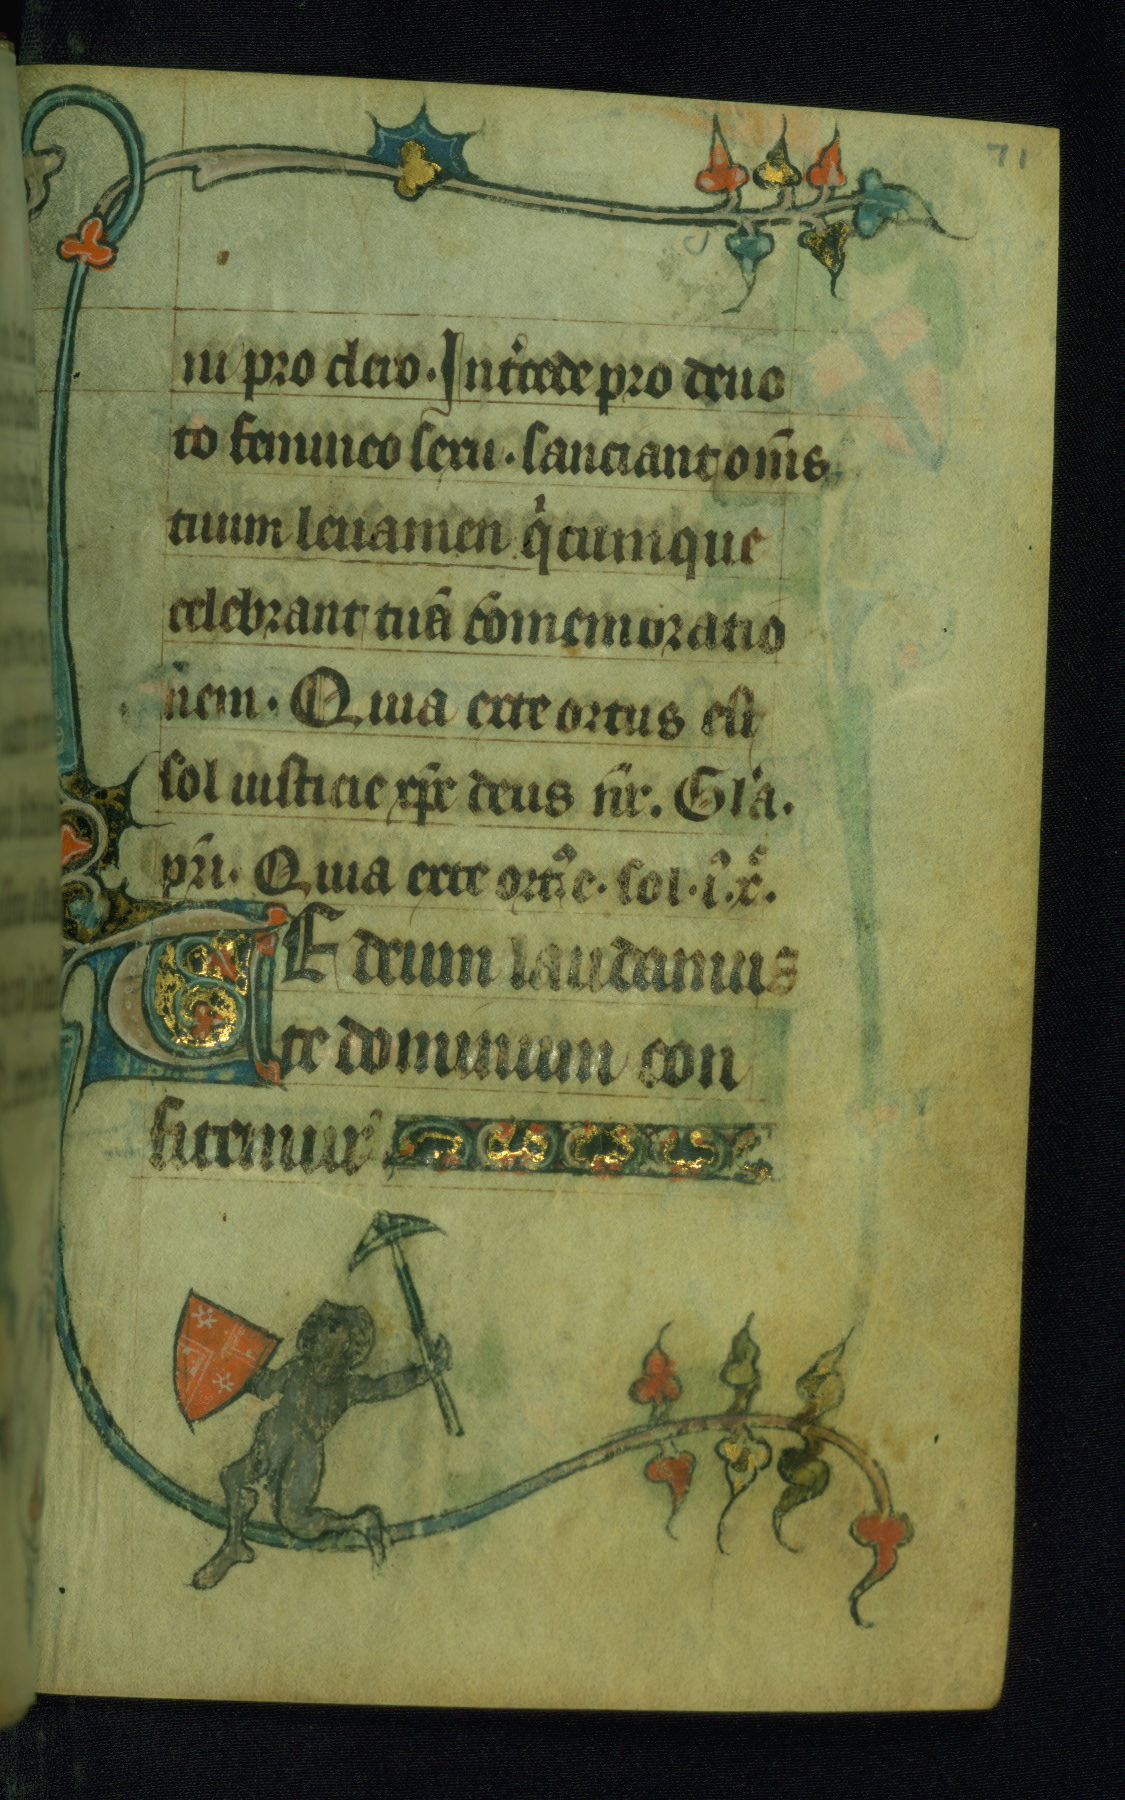 71
ni pro clero. Int͛cede pro deuo
to femineo sexu. sanciant om̄s
tuum leuamen qͥcumque
celebrant tuā cōmemoratio
nem. Quia exte ortus est
sol iusticie xp̄c deus nr̄. Glā.
pri. Quia exte ort᷒ e. sol. i. x.
TE deum laudamus
te dominum con
fitemur